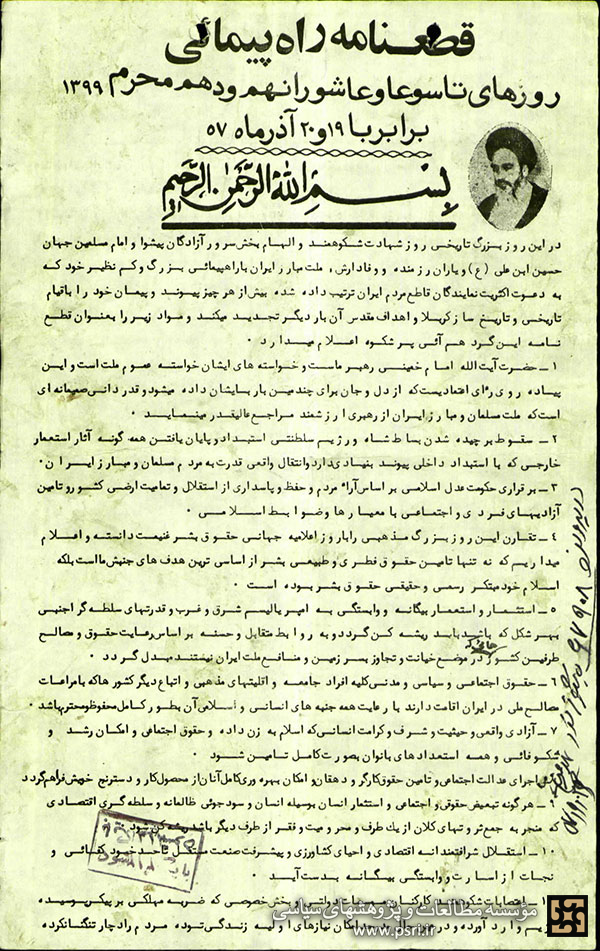 قطعنامه راه پیمائی
روزهای تاسوعا و عاشورا نهم و دهم محرم ۱۳۹۹
برابر با ۱۹ و ۲۰ آذرماه ۵۷
بسم الله الرحمن الرحیم
در این روز بزرگ تاریخی روز شهادت شکوهمند و الهام بخش سرور آزادگان پیشوا و امام مسلمین جهان
حسین ابن علی (ع) و یاران رزمنده و وفادارش، ملت مبارز ایران با راهپیمائی بزرگ و کم نظیر خود که
به دعوت اکثریت نمایندگان قاطع مردم ایران ترتیب داده شده بیش از هر چیز پیوند و پیمان خود را با قیام
تاریخی و تاریخ ساز کربلا و اهداف مقدس آن بار دیگر تجدید میکند و مواد زیر را بعنوان قطع
نامه این گرد هم آئی پر شکوه اعلام میدارد ۰
۱ ــ حضرت آیت الله امام خمینی رهبر ماست و خواسته های ایشان خواسته عموم ملت است و این
پیاده روی رای اعتمادیست که از دل و جان برای چندمین بار بایشان داده میشود و قدردانی صمیمانه ای
است که ملت مسلمان و مبارز ایران از رهبری ارزشمند مراجع عالیقدر مینماید
۲ ــ سقوط و برچیده شدن بساط شاه و رژیم سلطنتی استبداد و پایان یافتن همه گونه آثار استعمار
خارجی که با استبداد داخلی پیوند بنیادی دارد و انتقال واقعی قدرت به مردم مسلمان و مبارز ایران ۰
۳ ــ برقراری حکومت عدل اسلامی بر اساس آراء مردم و حفظ و پاسداری از استقلال و تمامیت ارضی کشور و تامین
آزادیهای فردی و اجتماعی با معیارها و ضوابط اسلامی ۰
۴ ــ تقارن این روز بزرگ مذهبی را با روز اعلامیه جهانی حقوق بشر غنیمت دانسته و اعلام
میداریم که نه تنها تامین حقوق فطری و طبیعی بشر از اساسی ترین هدف های جنبش ما است بلکه
اسلام خود مبتکر رسمی و حقیقی حقوق بشر بوده است ۰
۵ ــ استثمار و استعمار بیگانه و وابستگی به امپریالیسم شرق و غرب و قدرتهای سلطه گر اجنبی
بهر شکل که باشد باید ریشه کن گردد و به روابط متقابل و حسنه بر اساس رعایت حقوق و مصالح
طرفین کشورهائیکه در موضع خیانت و تجاوز بسرزمین و منافع ملت ایران نیستند مبدل گردد ۰
۶ ــ حقوق اجتماعی و سیاسی و مدنی کلیه افراد جامعه و اقلیتهای مذهبی و اتباع دیگر کشورها که با مراعات
مصالح ملی در ایران اقامت دارند با رعایت همه جنبه های انسانی و اسلامی آن بطور کامل محفوظ و محترم باشد ۰
۷ ــ آزادی واقعی و حیثیت و شرف و کرامت انسانی که اسلام به زن داده و حقوق اجتماعی و امکان رشد و
شکوفائی و همه استعدادهای بانوان بصورت کامل تامین شود
۸ ــ اجرای عدالت اجتماعی و تامین حقوق کارگر و دهقان و امکان بهره وری کامل آنان از محصول کار و دسترنج خویش فراهم گردد
۹ ــ هر گونه تبعیض حقوقی و اجتماعی و استثمار انسان بوسیله انسان و سودجوئی ظالمانه و سلطه گری اقتصادی
که منجر به جمع ثروتهای کلان از یک طرف و محرومیت و فقر از طرف دیگر باشد ریشه کن شود
۱۰ ــ استقلال شرافتمندانه اقتصادی و احیای کشاورزی و پیشرفت صنعت مستقل تا حد خود کفائی و
نجات از اسارت و وابستگی بیگانه بدست آید ۰
۱۱ ــ اعتصابات شکوهمند کارکنان دولتی و بخش خصوصی که ضربه مهلکی بر پیکر پوسیده
رژیم وارد آورده و نیازهای اولیه زندگی توده مردم را دچار تنگنا نکرده
مؤسسه مطالعات و پژوهشهای سیاسی
www.psri.ir